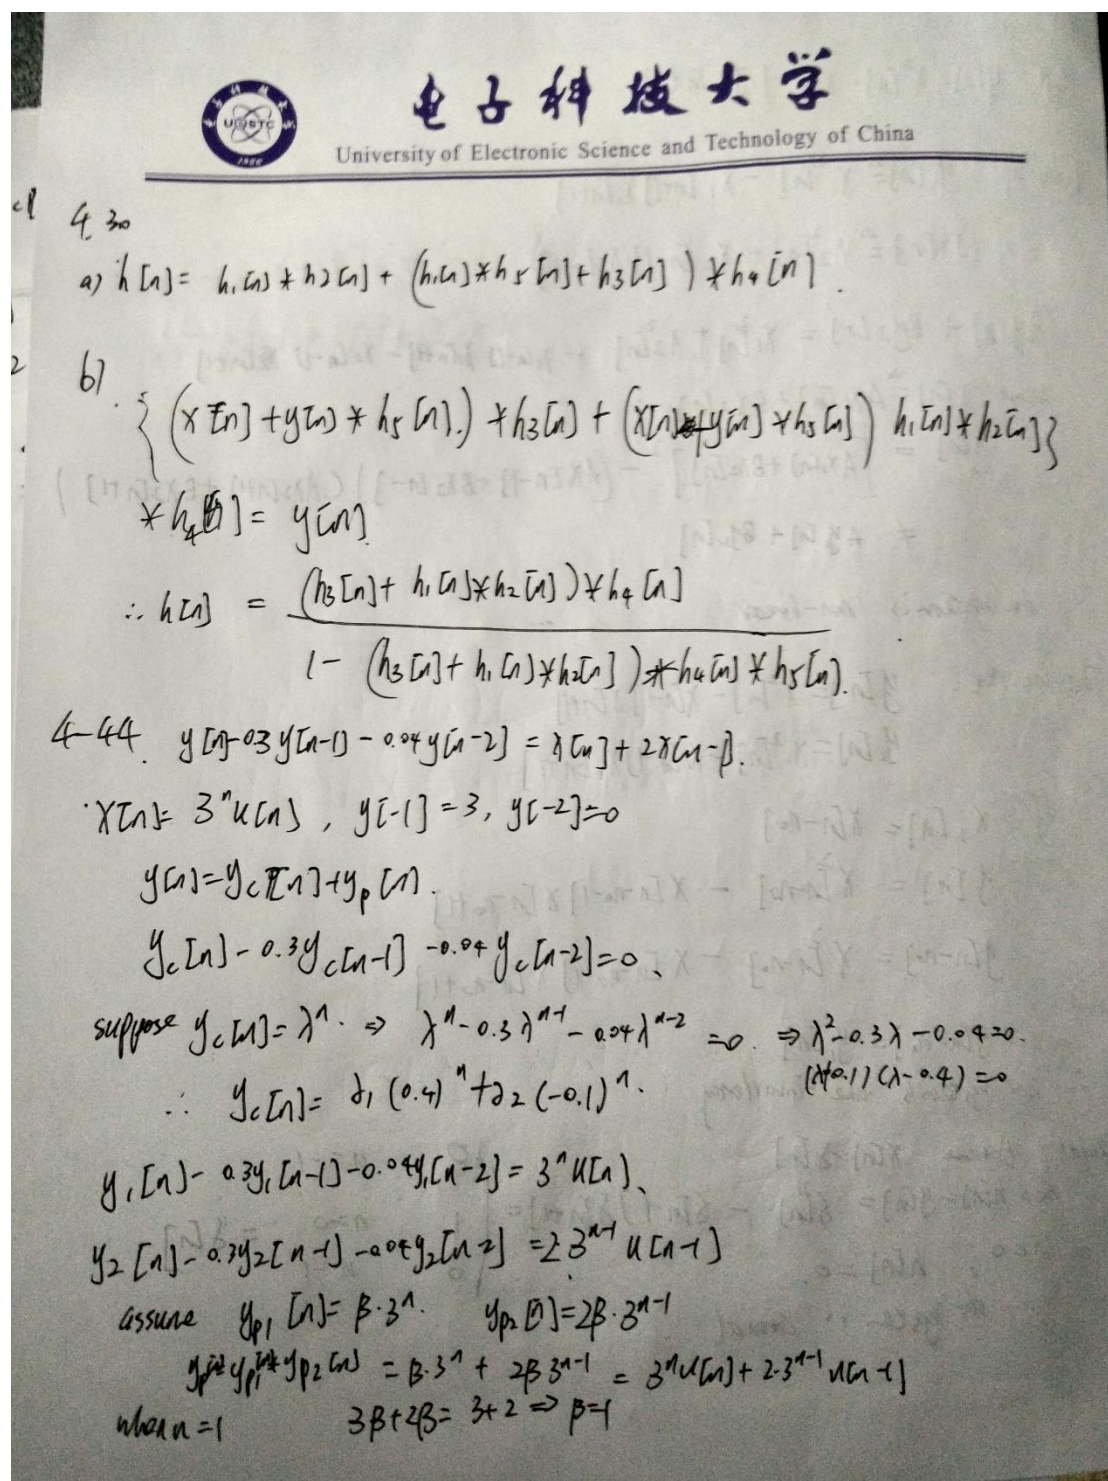 电子科技大学
University of Electronic Science and Technology of China
4.30
a) h[n] = h1[n] * h2[n] + (h1[n] * h5[n] + h3[n]) * h4[n].
b).
{ (x[n] + y[n] * h5[n].) * h3[n] + (x[n] + y[n] * h5[n]) h1[n] * h2[n] }
* h4[n] = y[n].
∴ h[n] = (h3[n] + h1[n] * h2[n]) * h4[n]
1 - (h3[n] + h1[n] * h2[n]) * h4[n] * h5[n].
4-44. y[n] - 0.3y[n-1] - 0.04y[n-2] = x[n] + 2x[n-1].
x[n] = 3^n u[n], y[-1] = 3, y[-2] = 0
y[n] = yc[n] + yp[n].
yc[n] - 0.3yc[n-1] - 0.04yc[n-2] = 0.
suppose yc[n] = λ^n. ⇒ λ^n - 0.3λ^n-1 - 0.04λ^n-2 = 0. ⇒ λ^2 - 0.3λ - 0.04 = 0.
(λ+0.1)(λ-0.4) = 0
∴ yc[n] = ∂1(0.4)^n + ∂2(-0.1)^n.
y1[n] - 0.3y1[n-1] - 0.04y1[n-2] = 3^n u[n].
y2[n] - 0.3y2[n-1] - 0.04y2[n-2] = 2 3^n-1 u[n-1]
assume yp1[n] = β·3^n. yp2[n] = 2β·3^n-1
yp[n] = yp1[n] + yp2[n] = β·3^n + 2β 3^n-1 = 3^n u[n] + 2·3^n-1 u[n-1]
when n=1 3β+2β = 3+2 ⇒ β=1